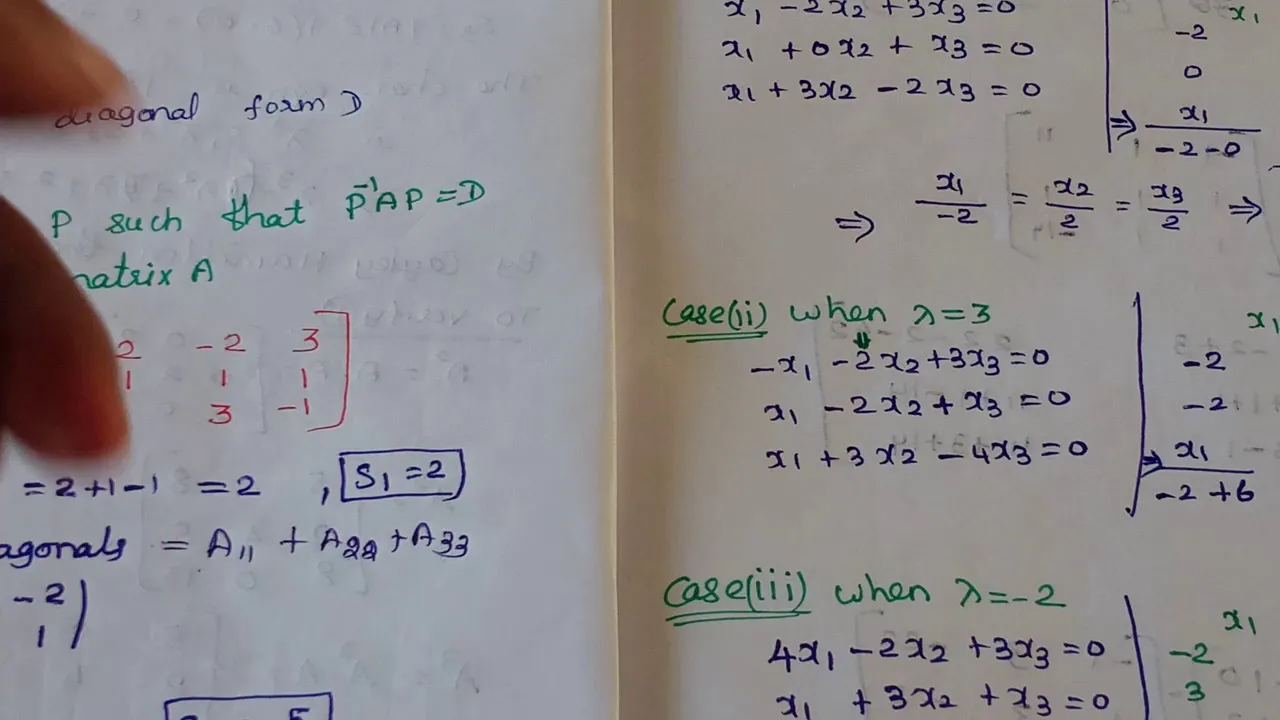 diagonal form D
P such that P⁻¹AP = D
matrix A
2 -2 3
1 1 1
3 -1
= 2+1-1 = 2 , S₁ = 2
agonals = A₁₁ + A₂₂ + A₃₃
-2
1
x₁ - 2x₂ + 3x₃ = 0
x₁ + 0x₂ + x₃ = 0
x₁ + 3x₂ - 2x₃ = 0
x₁
-2
0
⇒ x₁/(-2-0)
⇒ x₁/-2 = x₂/2 = x₃/2 ⇒
Case(ii) when λ=3
-x₁ - 2x₂ + 3x₃ = 0
x₁ - 2x₂ + x₃ = 0
x₁ + 3x₂ - 4x₃ = 0
x₁
-2
-2
⇒ x₁/(-2+6)
Case(iii) when λ=-2
4x₁ - 2x₂ + 3x₃ = 0
x₁ + 3x₂ + x₃ = 0
x₁
-2
3